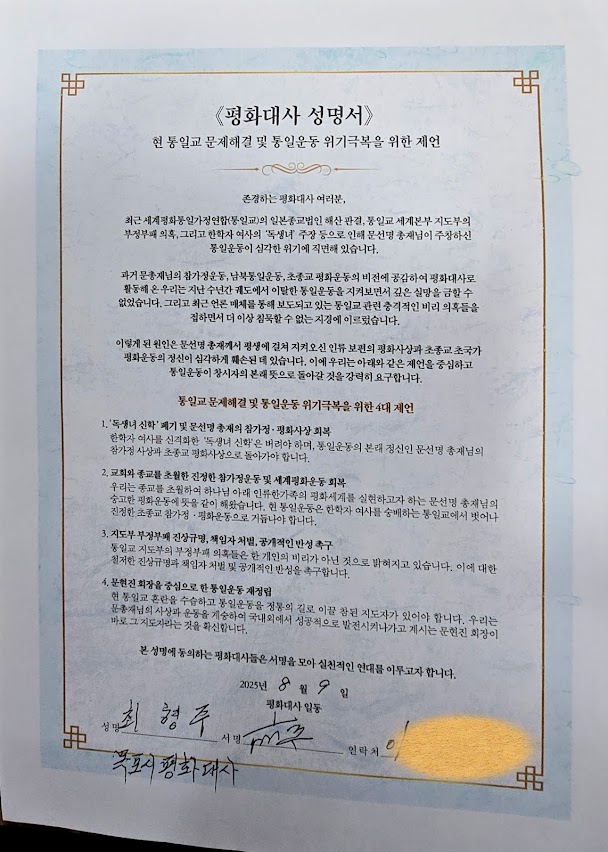 《평화대사 성명서》
현 통일교 문제해결 및 통일운동 위기극복을 위한 제언
존경하는 평화대사 여러분,
최근 세계평화통일가정연합(통일교)의 일본종교법인 해산 판결, 통일교 세계본부 지도부의
부정부패 의혹, 그리고 한학자 여사의 '독생녀' 주장 등으로 인해 문선명 총재님이 주창하신
통일운동이 심각한 위기에 직면해 있습니다.
과거 문총재님의 참가정운동, 남북통일운동, 초종교 평화운동의 비전에 공감하여 평화대사로
활동해 온 우리는 지난 수년간 궤도에서 이탈한 통일운동을 지켜보면서 깊은 실망을 금할 수
없었습니다. 그리고 최근 언론 매체를 통해 보도되고 있는 통일교 관련 충격적인 비리 의혹들을
접하면서 더 이상 침묵할 수 없는 지경에 이르렀습니다.
이렇게 된 원인은 문선명 총재께서 평생에 걸쳐 지켜오신 인류 보편의 평화사상과 초종교 초국가
평화운동의 정신이 심각하게 훼손된 데 있습니다. 이에 우리는 아래와 같은 제언을 중심하고
통일운동이 창시자의 본래 뜻으로 돌아갈 것을 강력히 요구합니다.
통일교 문제해결 및 통일운동 위기극복을 위한 4대 제언
1. '독생녀 신학' 폐기 및 문선명 총재의 참가정·평화사상 회복
한학자 여사를 신격화한 '독생녀 신학'은 버려야 하며, 통일운동의 본래 정신인 문선명 총재님의
참가정 사상과 초종교 평화사상으로 돌아가야 합니다.
2. 교회와 종교를 초월한 진정한 참가정운동 및 세계평화운동 회복
우리는 종교를 초월하여 하나님 아래 인류한가족의 평화세계를 실현하고자 하는 문선명 총재님의
숭고한 평화운동에 뜻을 같이 해왔습니다. 현 통일운동은 한학자 여사를 숭배하는 통일교에서 벗어나
진정한 초종교 참가정·평화운동으로 거듭나야 합니다.
3. 지도부 부정부패 진상규명, 책임자 처벌, 공개적인 반성 촉구
통일교 지도부의 부정부패 의혹들은 한 개인의 비리가 아닌 것으로 밝혀지고 있습니다. 이에 대한
철저한 진상규명과 책임자 처벌 및 공개적인 반성을 촉구합니다.
4. 문현진 회장을 중심으로 한 통일운동 재정립
현 통일교 혼란을 수습하고 통일운동을 정통의 길로 이끌 참된 지도자가 있어야 합니다. 우리는
문총재님의 사상과 운동을 계승하여 국내외에서 성공적으로 발전시켜나가고 계시는 문현진 회장이
바로 그 지도자라는 것을 확신합니다.
본 성명에 동의하는 평화대사들은 서명을 모아 실천적인 연대를 이루고자 합니다.
2025년 8 월 9 일
평화대사 일동
성명 최형주 서명 연락처
목포시 평화대사